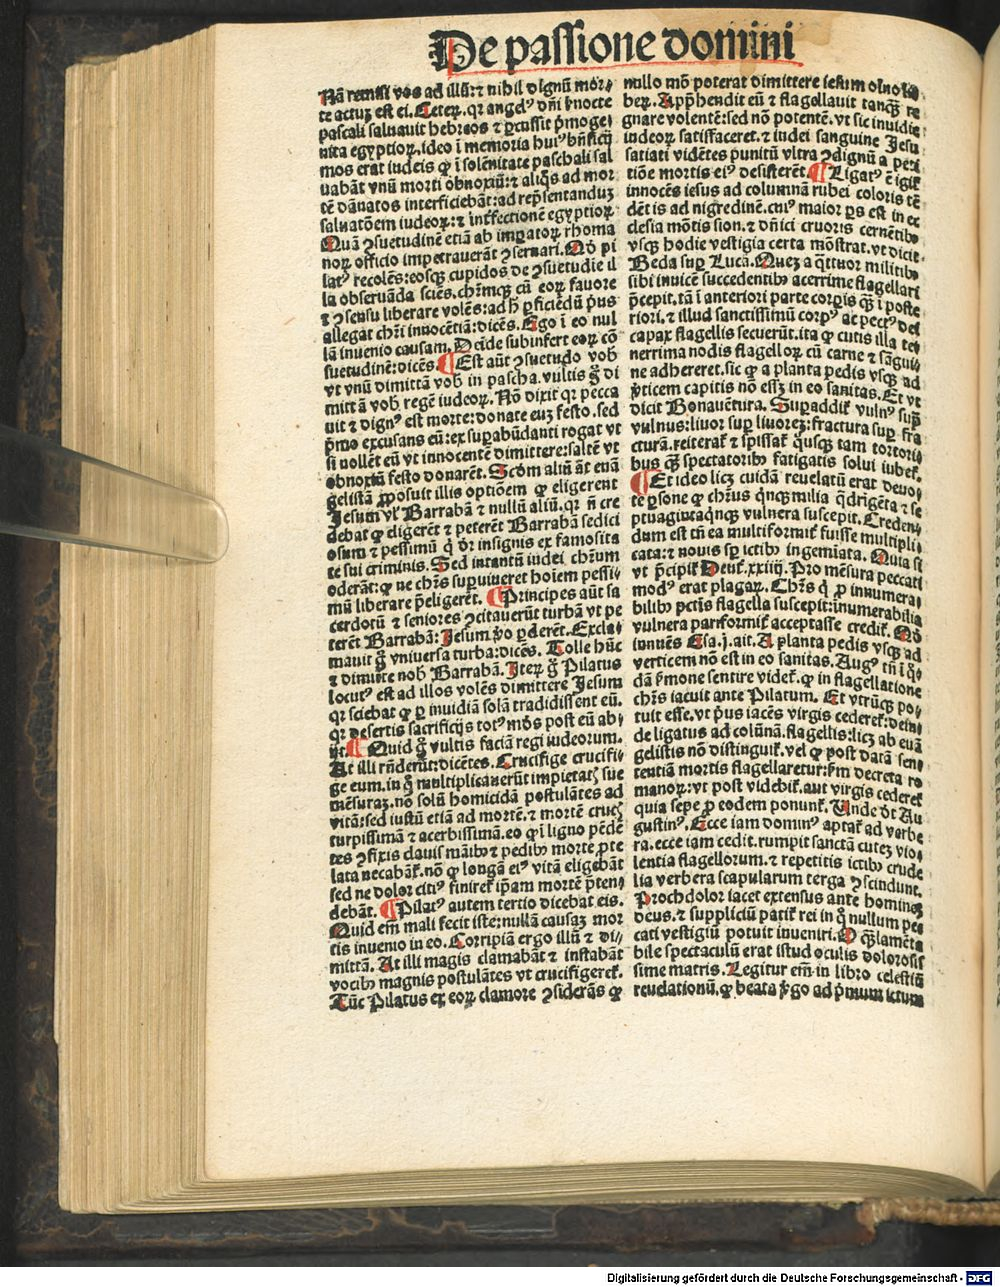 De passione domini
Nã remisi vos ad illũ: ⁊ nihil dignũ mor⸗
te actuȝ est ei. Ceteꝝ. qꝛ angelꝰ dñi ĩ nocte
pascali saluauit hebreos ⁊ ꝑcussit pͥmoge⸗
nita egyptioꝝ. ideo ĩ memoria huiꝰ bñficij
mos erat iudeis ꝙ ĩ solẽnitate paschali sal
uabãt vnũ morti obnoxiũ: ⁊ aliq̃s ad mor
tẽ dãnatos interficiebãt: ad rep̃sentanduȝ
saluatõem iudeoꝝ: ⁊ ĩterfectionẽ egyptioꝝ
Quã ꝯsuetudinẽ etiã ab imꝑatoꝝ rhoma
noꝝ officio impetrauerãt ꝯseruari. Mõ pi
latꝰ recolẽs: eosꝙ cupidos de ꝯsuetudie il
la obseruãda sciẽs. ch̃rmqꝫ cũ eoꝝ fauore
⁊ ꝯsensu liberare volẽs: ad h̃ ꝑficiẽdũ pͥus
allegat ch̃ri innocẽtiã: dicẽs. Ego ĩ eo nul
lã inuenio causam. Deĩde subinfert eoꝝ cõ
suetudinẽ: dicẽs. ¶ Est aũt ꝯsuetudo vob̃
vt vnũ dimittã vob̃ in pascha. vultis g̊ di
mittã vob̃ regẽ iudeoꝝ. Nõ dixit qꝛ pecca
uit ⁊ dignꝰ est morte: donate euȝ festo. sed
pͥmo excusans eũ: ex suꝑabũdanti rogat vt
si nollẽt eũ vt innocentẽ dimittere: saltẽ vt
obnoxiũ festo donarẽt. Scd̃m aliũ aũt euã
gelistã ꝓposuit illis optiõem ꝙ eligerent
Jesum vl̓ Barrabã ⁊ nullũ aliũ. qꝛ ñ cre
debat ꝙ eligerẽt ⁊ peterẽt Barrabã sedici
osum ⁊ pessimũ q̇ dr̃ insignis ex famosita
te sui criminis. Sed intantũ iudei ch̃rum
oderãt: ꝙ ne ch̃rs suꝑuiueret hoĩem pessi⸗
mũ liberare p̃eligerẽt. ¶ Principes aũt sa
cerdotũ ⁊ seniores ꝯcitauerũt turbã vt pe
terẽt Barrabã: Jesum ꝟo ꝑderẽt. Excla⸗
mauit g̊ vniuersa turba: dicẽs. Tolle hũc
⁊ dimitte nob̃ Barrabã. Iteꝝ g̊ Pilatus
locutꝰ est ad illos volẽs dimittere Jesum
qꝛ sciebat ꝙ ꝑ inuidiã solã tradidissent eũ.
qꝛ desertis sacrificijs totꝰ mũdꝰ post eũ ab⸗
ijt. ¶ Quid g̊ vultis faciã regi iudeorum.
At illi rñderũt: dicẽtes. Crucifige crucifi⸗
ge eum. in q̊ multiplicauerũt impietatꝭ sue
mẽsuraȝ. nõ solũ homicidã postulãtes ad
vitã: sed iustũ etiã ad mortẽ. ⁊ mortẽ crucꝭ
turpissimã ⁊ acerbissimã. eo ꝙ ĩ ligno pẽdẽ
tes ꝯfixis clauis mãibꝫ ⁊ pedibꝫ morte ꝓte
lata necabãt̃. nõ ꝙ longã eiꝰ vitã eligebãt
sed ne dolor citiꝰ finiret̃ ip̃am mortẽ p̃ten⸗
debãt. ¶ Pilatꝰ autem tertio dicebat eis.
Quid em̃ mali fecit iste: nullã causaȝ mor
tis inuenio in eo. Corripiã ergo illũ ⁊ di⸗
mittã. At illi magis clamabãt ⁊ instabãt
vocibꝫ magnis postulãtes vt crucifigeret̃.
Tũc Pilatus ex eoꝝ clamore ꝯsiderãs ꝙ
nullo mõ poterat dimittere iesum
beꝝ. App̃hendit eũ ⁊ flagellauit tanq̃ȝ re
gnare volentẽ: sed nõ potentẽ. vt sic inuidie
iudeoꝝ satisfaceret. ⁊ iudei sanguine Jesu
satiati vidẽtes punitũ vltra ꝯdignũ a peti
tiõe mortis eiꝰ desisterẽt. ¶ Ligatꝰ ẽ igit̃
innocẽs iesus ad columnã rubei coloris tẽ
dẽtis ad nigredinẽ. cuiꝰ maior ꝑs est in ec
clesia mõtis sion. ⁊ dñici cruoris cernẽtibꝫ
vsqꝫ hodie vestigia certa mõstrat. vt dicit
Beda suꝑ Lucã. Quez a q̃ttuor militibꝫ
sibi inuicẽ succedentibꝫ acerrime flagellari
p̃cepit. tã ĩ anteriori parte corꝑis q̃ȝ ĩ poste
riori. ⁊ illud sanctissimũ corpꝰ ac pectꝰ dei
capax flagellis secuerũt. ita ꝙ cutis illa te⸗
nerrima nodis flagelloꝝ cũ carne ⁊ sãgui⸗
ne adhereret. sic ꝙ a planta pedis vsqꝫ ad
ꝟticem capitis nõ essȝ in eo sanitas. Et vt
dicit Bonauẽtura. Suꝑaddit̃ vulnꝰ suꝑ
vulnus: liuor suꝑ liuoreȝ: fractura suꝑ fra
cturã. reiterat̃ ⁊ spissat̃ qusqꝫ tam tortori⸗
bus q̃ȝ spectatoribꝫ fatigatis solui iubet̃.
¶ Et ideo licȝ cuidã reuelatũ erat deuo⸗
te ꝑsone ꝙ ch̃rus q̇nqꝫ milia q̇drĩgẽta ⁊ se
ptuagintaq̇nqꝫ vulnera suscepit. Creden⸗
dum est tñ ea multiformit̃ fuisse multipli⸗
cata: ⁊ nouis sꝑ ictibꝫ ingemĩata. Quia si
vt p̃cipit̃ Deut̃. xxiiij. Pro mẽsura peccati
modꝰ erat plagaꝝ. Ch̃rs q̇ ꝓ innumera⸗
bilibꝫ pctĩs flagella suscepit: innumerabilia
vulnera pariformit̃ acceptasse credit̃. Mõ
iuruẽs Esa. j. ait. A planta pedis vsqꝫ ad
verticem nõ est in eo sanitas. Augꝰ tñ ĩ q̊⸗
dã sermone sentire videt̃. ꝙ in flagellatione
ch̃rs iacuit ante Pilatum. Et vtrũqꝫ po⸗
tuit esse. vt pͥus iacẽs virgis cederet̃: dein⸗
de ligatus ad colũnã. flagellis: licȝ ab euã
gelistis nõ distinguit̃. vel ꝙ post datã sen⸗
tentiã mortis flagellaretur: ẜm decreta ro
manoꝝ: vt post videbit̃. aut virgis cederet̃
quia sepe ꝓ eodem ponunt̃. Unde dt̃ Au
gustinꝰ. Ecce iam dominꝰ aptat̃ ad verbe
ra. ecce iam cedit. rumpit sanctã cuteȝ vio⸗
lentia flagellorum. ⁊ repetitis ictibꝫ crude
lia verbera scapularum terga ꝯscindunt.
Proch dolor iacet extensus ante homineȝ
deus. ⁊ suppliciũ patit̃ rei in q̊ nullum pec
cati vestigiũ potuit inueniri. O q̃ȝ lamẽta
bile spectaculũ erat istud oculis dolorosis
sime matris. Legitur em̃ in libro celestiũ
reuelationũ. ꝙ beata ꝟgo ad pͥmum ictum
Digitalisierung gefördert durch die Deutsche Forschungsgemeinschaft - DFG